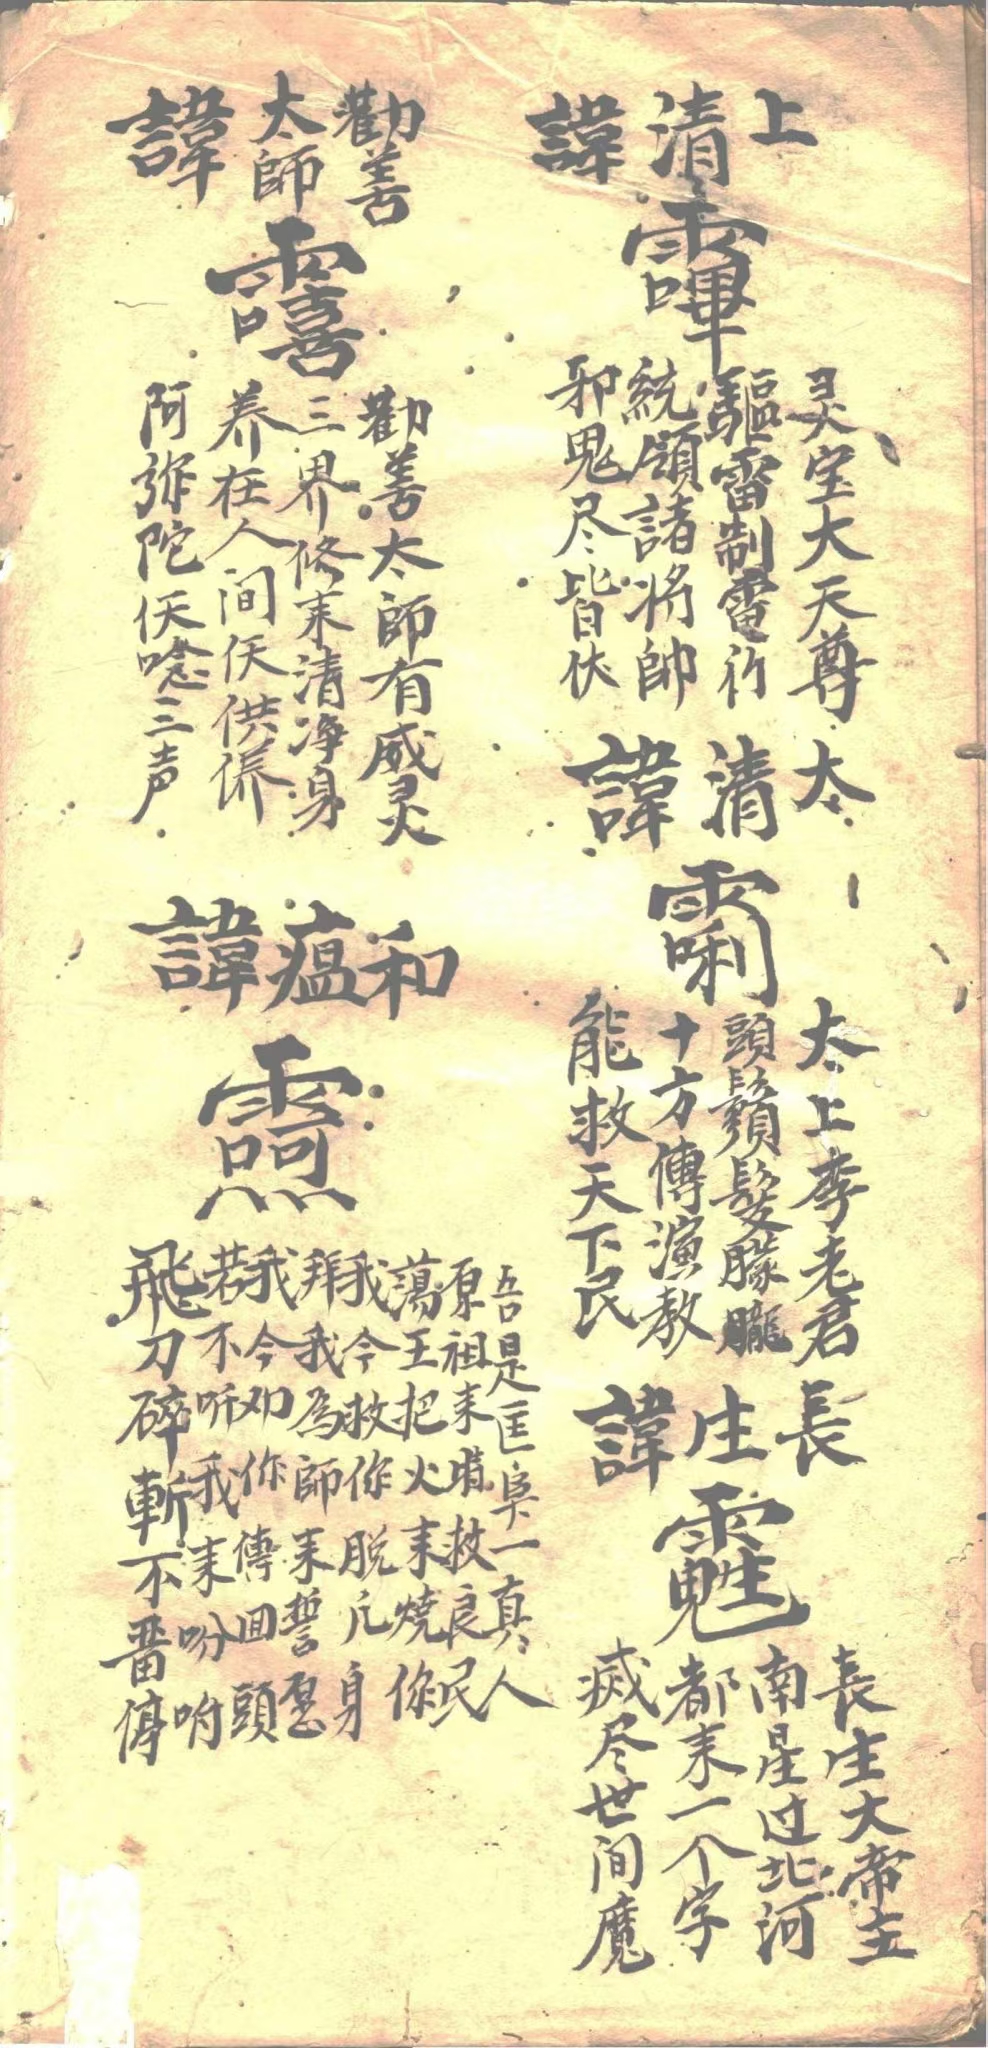 上清諱
灵宝大天尊
驅雷制電行
統領諸將帥
邪鬼尽皆伏
太清諱
太上李老君
頭鬚髮朦朧
十方傳演教
能救天下民
長生諱
長生大帝主
南星过北河
都来一个字
滅尽世间魔
勸善太師諱
勸善太師有威灵
三界修来清净身
养在人间仸供养
阿弥陀仸唸三声
和瘟諱
吾是匡阜一真人
原祖来救良民
蕩王把火来燒你
我今救你脱凡身
拜我為師来誓愿
我今劝你傳回頭
若不听我来吩咐
飛刀碎斬不畱停